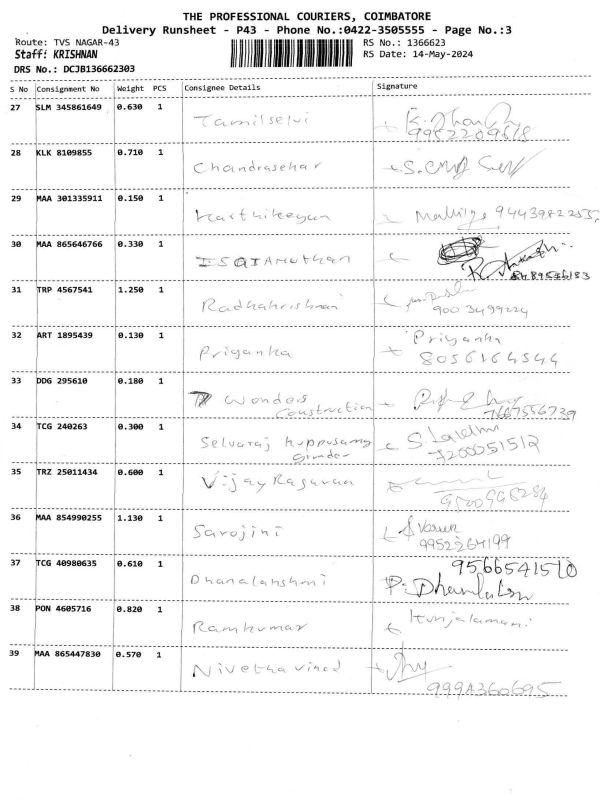 THE PROFESSIONAL COURIERS, COIMBATORE
Delivery Runsheet - P43 - Phone No.:0422-3505555 - Page No.:3
Route: TVS NAGAR-43 RS No.: 1366623
Staff: KRISHNAN RS Date: 14-May-2024
DRS No.: DCJB136662303
S No Consignment No Weight PCS Consignee Details Signature
27 SLM 345861649 0.630 1 Tamilselvi
9952209618
28 KLK 8109855 0.710 1 Chandrasekar
29 MAA 301335911 0.150 1 Karthikeyan 9443982255
30 MAA 865646766 0.330 1 ISAIAMUTHAN
31 TRP 4567541 1.250 1 Radhakrishnan
9003499224
32 ART 1895439 0.130 1 Priyanka Priyanka
8056164544
33 DDG 295610 0.180 1 Wonders
Construction 7667556739
34 TCG 240263 0.300 1 Selvaraj Kuppusamy
7200051512
35 TRZ 25011434 0.600 1 Vijay Ragavan
36 MAA 854990255 1.130 1 Sarojini
9952264199
37 TCG 40980635 0.610 1 Dhanalakshmi 9566541510
38 PON 4605716 0.820 1 Ramkumar Kunjalamani
39 MAA 865447830 0.570 1 Nivetha Vinod
9994360695